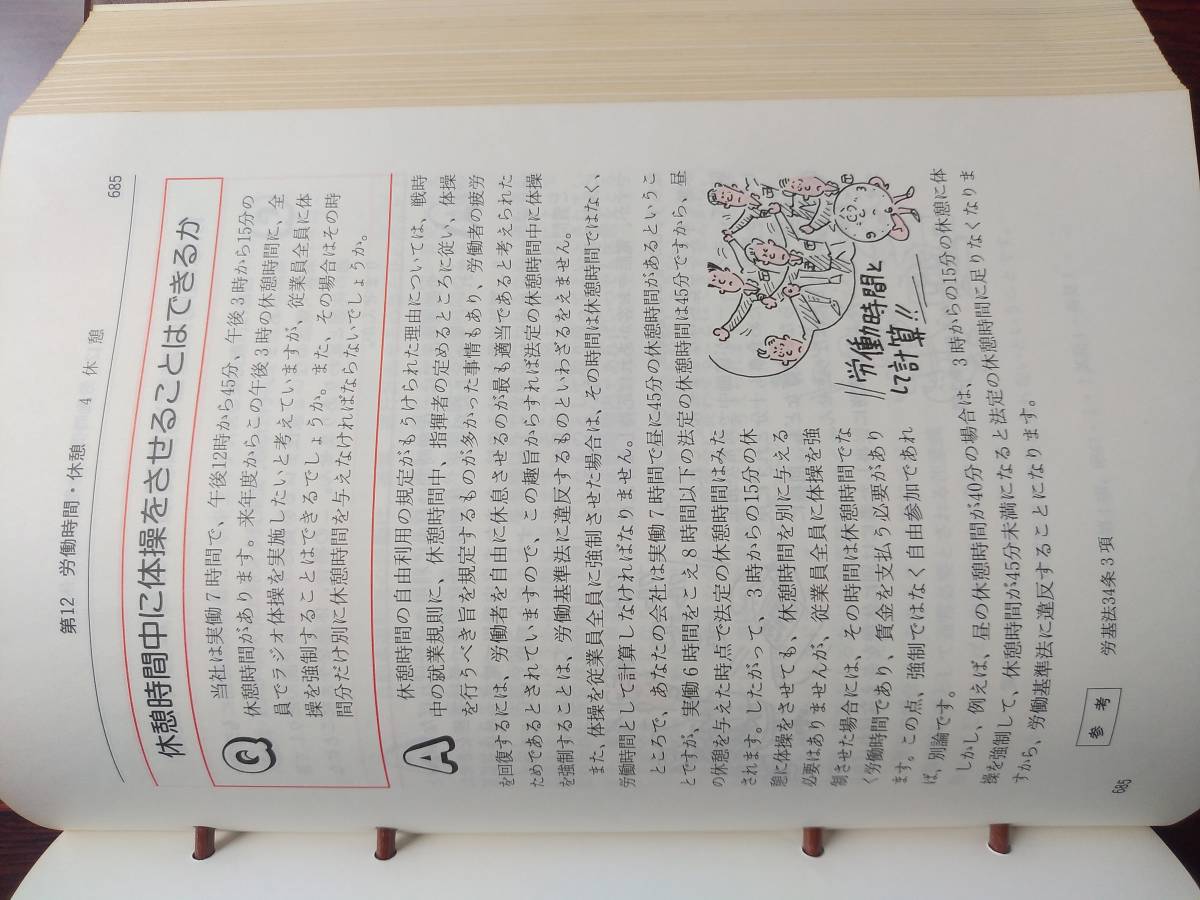 第12 労働時間・休憩 4 休 憩
685
休憩時間中に体操をさせることはできるか
Q
当社は実働7時間で、午後12時から45分、午後3時から15分の
休憩時間があります。来年度からこの午後3時の休憩時間に、全
員でラジオ体操を実施したいと考えていますが、従業員全員に体
操を強制することはできるでしょうか。また、その場合はその時
間分だけ別に休憩時間を与えなければならないでしょうか。
A
休憩時間の自由利用の規定がもうけられた理由については、戦時
中の就業規則に、休憩時間中、指揮者の定めるところに従い、体操
を行うべき旨を規定するものが多かった事情もあり、労働者の疲労
を回復するには、労働者を自由に休息させるのが最も適当であると考えられた
ためであるとされていますので、この趣旨からすれば法定の休憩時間中に体操
を強制することは、労働基準法に違反するものといわざるをえません。
また、体操を従業員全員に強制させた場合は、その時間は休憩時間ではなく、
労働時間として計算しなければなりません。
ところで、あなたの会社は実働7時間で昼に45分の休憩時間があるというこ
とですが、実働6時間をこえ8時間以下の法定の休憩時間は45分ですから、昼
の休憩を与えた時点で法定の休憩時間はみた
されます。したがって、3時からの15分の休
憩に体操をさせても、休憩時間を別に与える
必要はありませんが、従業員全員に体操を強
制させた場合には、その時間は休憩時間でな
く労働時間であり、賃金を支払う必要があり
ます。この点、強制ではなく自由参加であれ
ば、別論です。
労働時間と
して計算!!
しかし、例えば、昼の休憩時間が40分の場合は、3時からの15分の休憩に体
操を強制して、休憩時間が45分未満になると法定の休憩時間に足りなくなりま
すから、労働基準法に違反することになります。
参 考
労基法34条3項
685